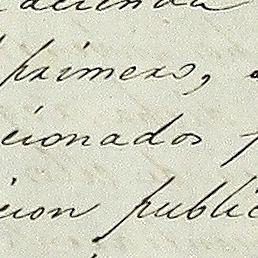 primero,
cionados
cion public